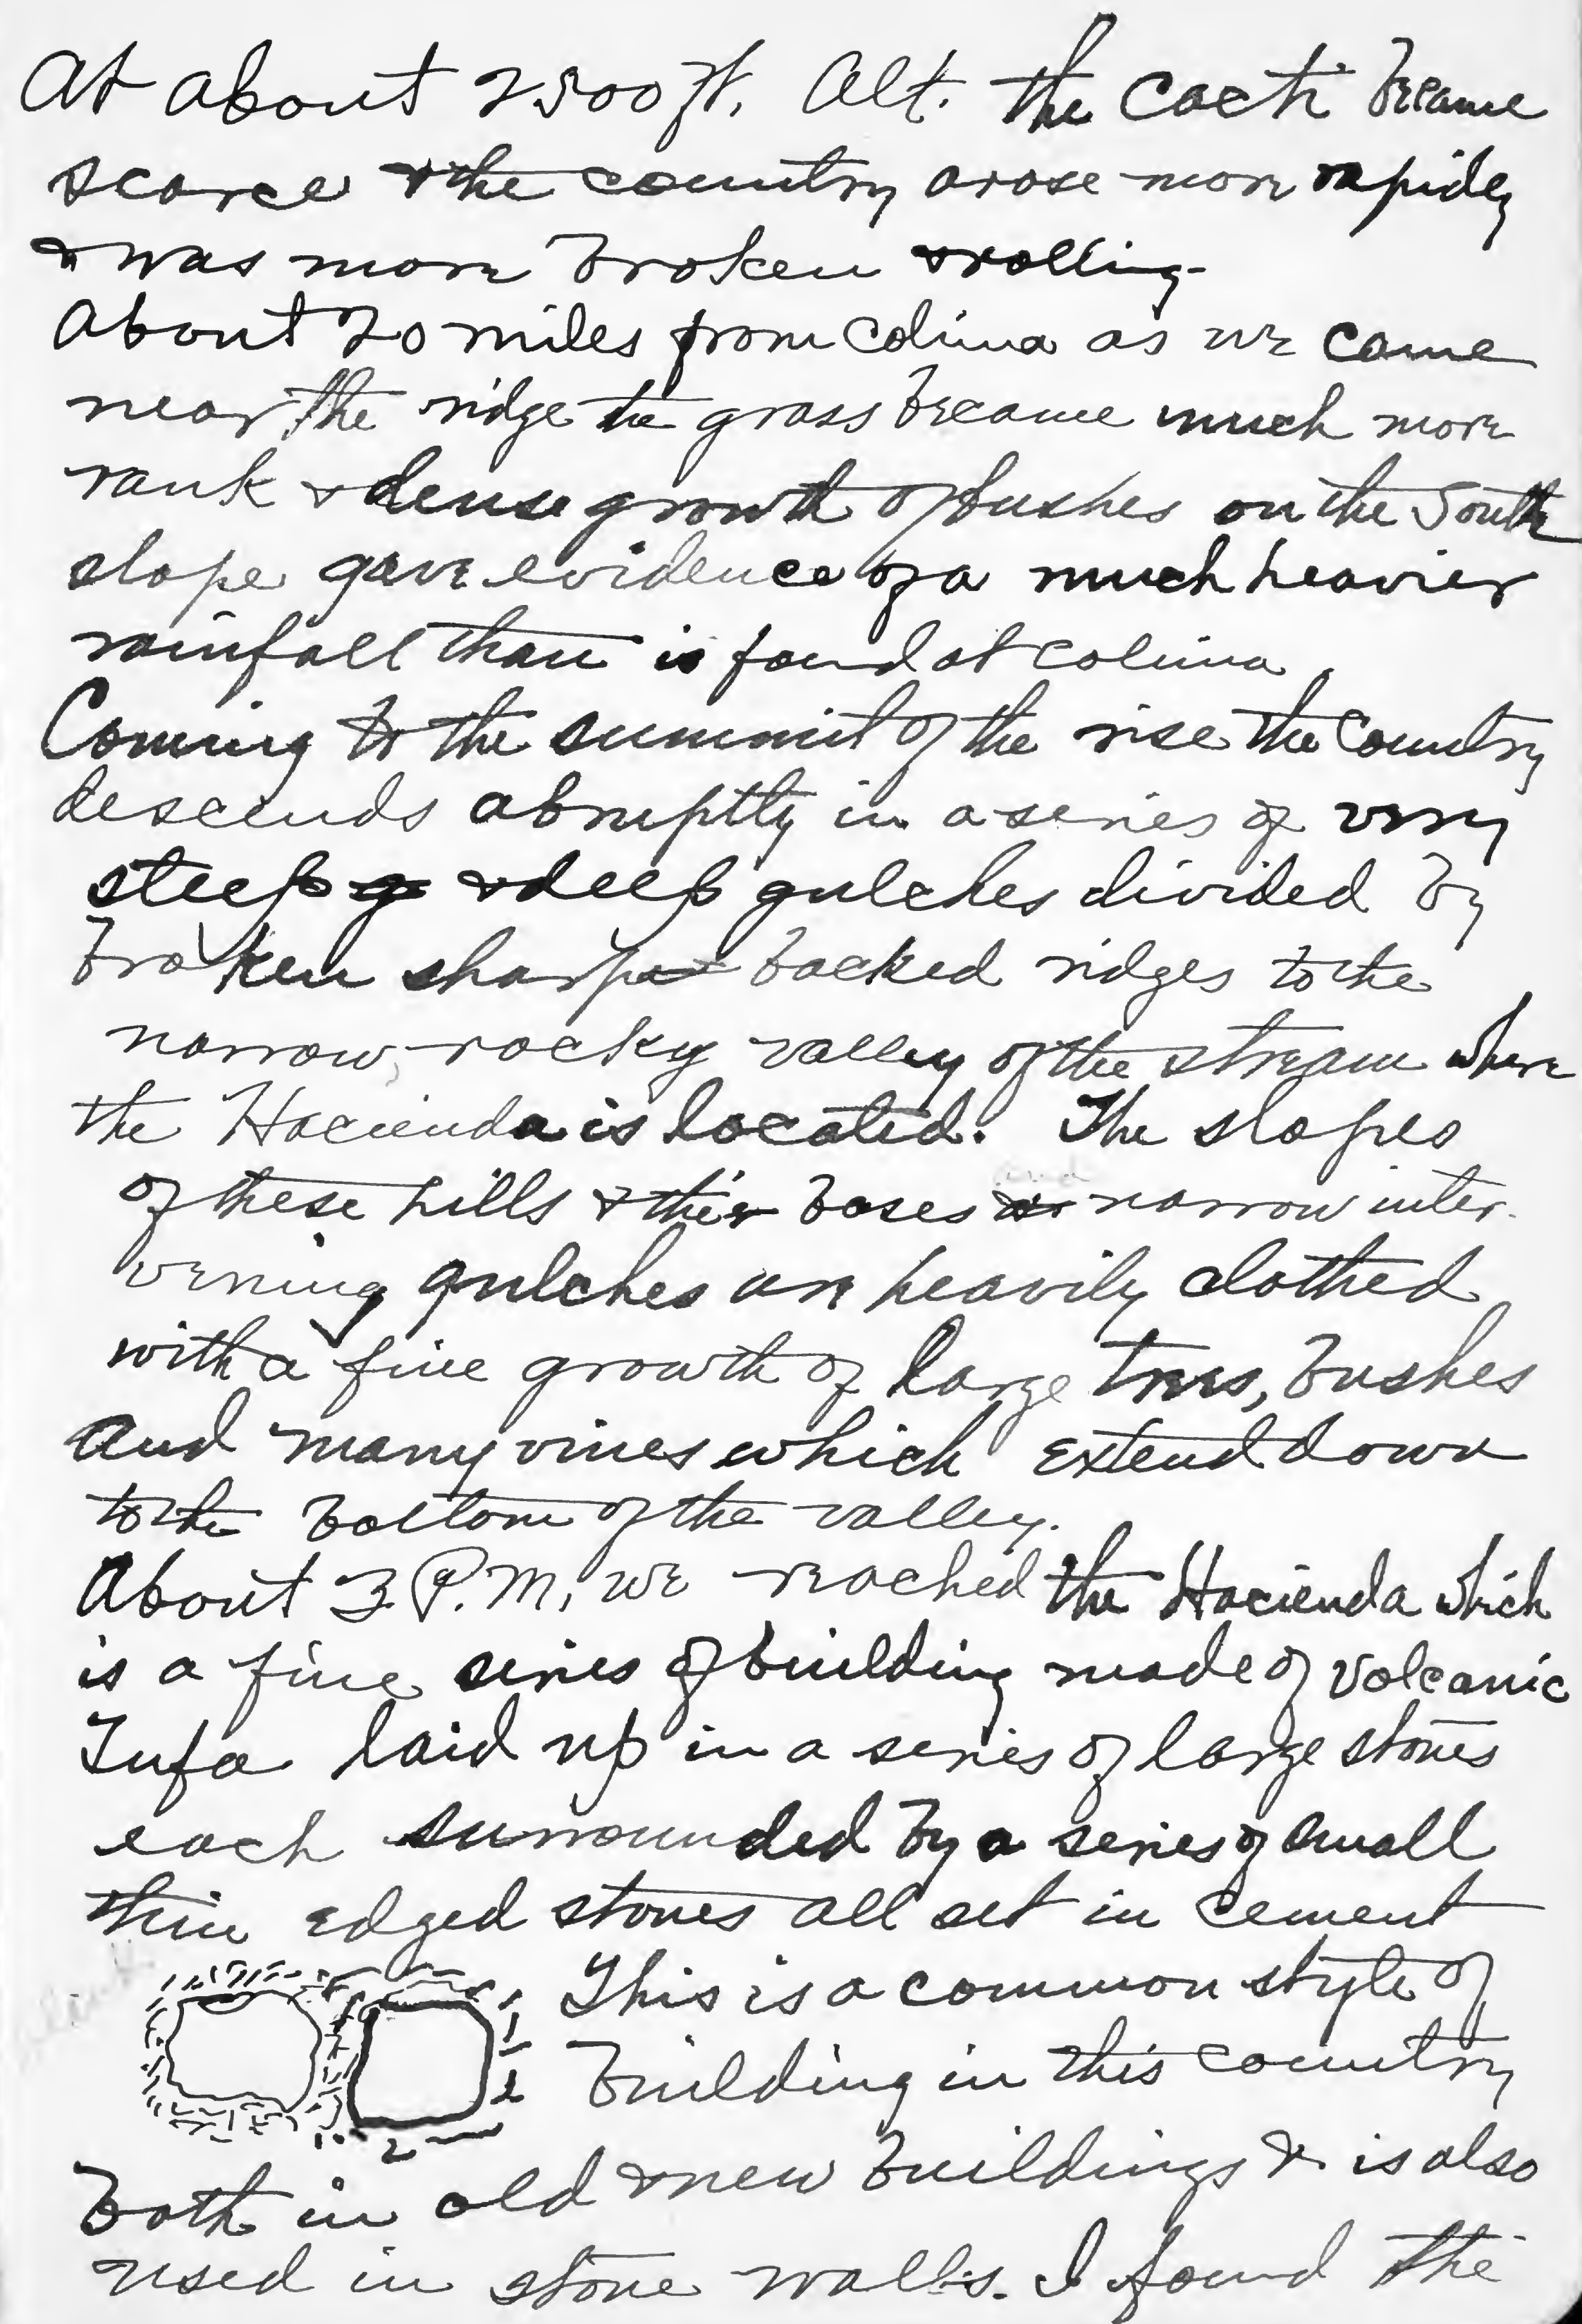 At about 2500 ft. Alt. the Cacti became
scarce & the country arose more rapidly
& was more broken & rolling
About 20 miles from Colima as we came
near the ridge the grass became much more
rank & dense growth of bushes on the South
slope gave evidence of a much heavier
rainfall than is found at Colima.
Coming to the summit of the rise the Country
descends abruptly in a series of very
steep & deep gulches divided by
broken sharp backed ridges to the
narrow, rocky valley of the stream where
the Hacienda is located. The slopes
of these hills & their bases and narrow inter-
vening gulches are heavily clothed
with a fine growth of large trees, bushes
and many vines which extend down
to the bottom of the valley.
About 3 P.M. we reached the Hacienda which
is a fine series of building made of Volcanic
Tufa laid up in a series of large stones
each surrounded by a series of small
thin edged stones all set in cement
This is a common style of
building in this country
both in old & new buildings & is also
used in stone walls. I found the